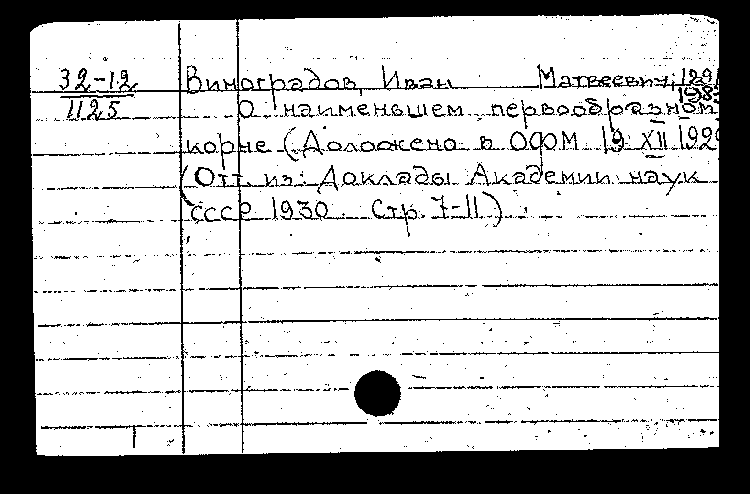 32-12
1125
Виноградов, Иван Матвеевич, 1891
О наименьшем первообразном
корне (Доложено в ОФМ 19 XII 1929
(Отт. из: Доклады Академии наук
СССР 1930 Стр. 7-11)